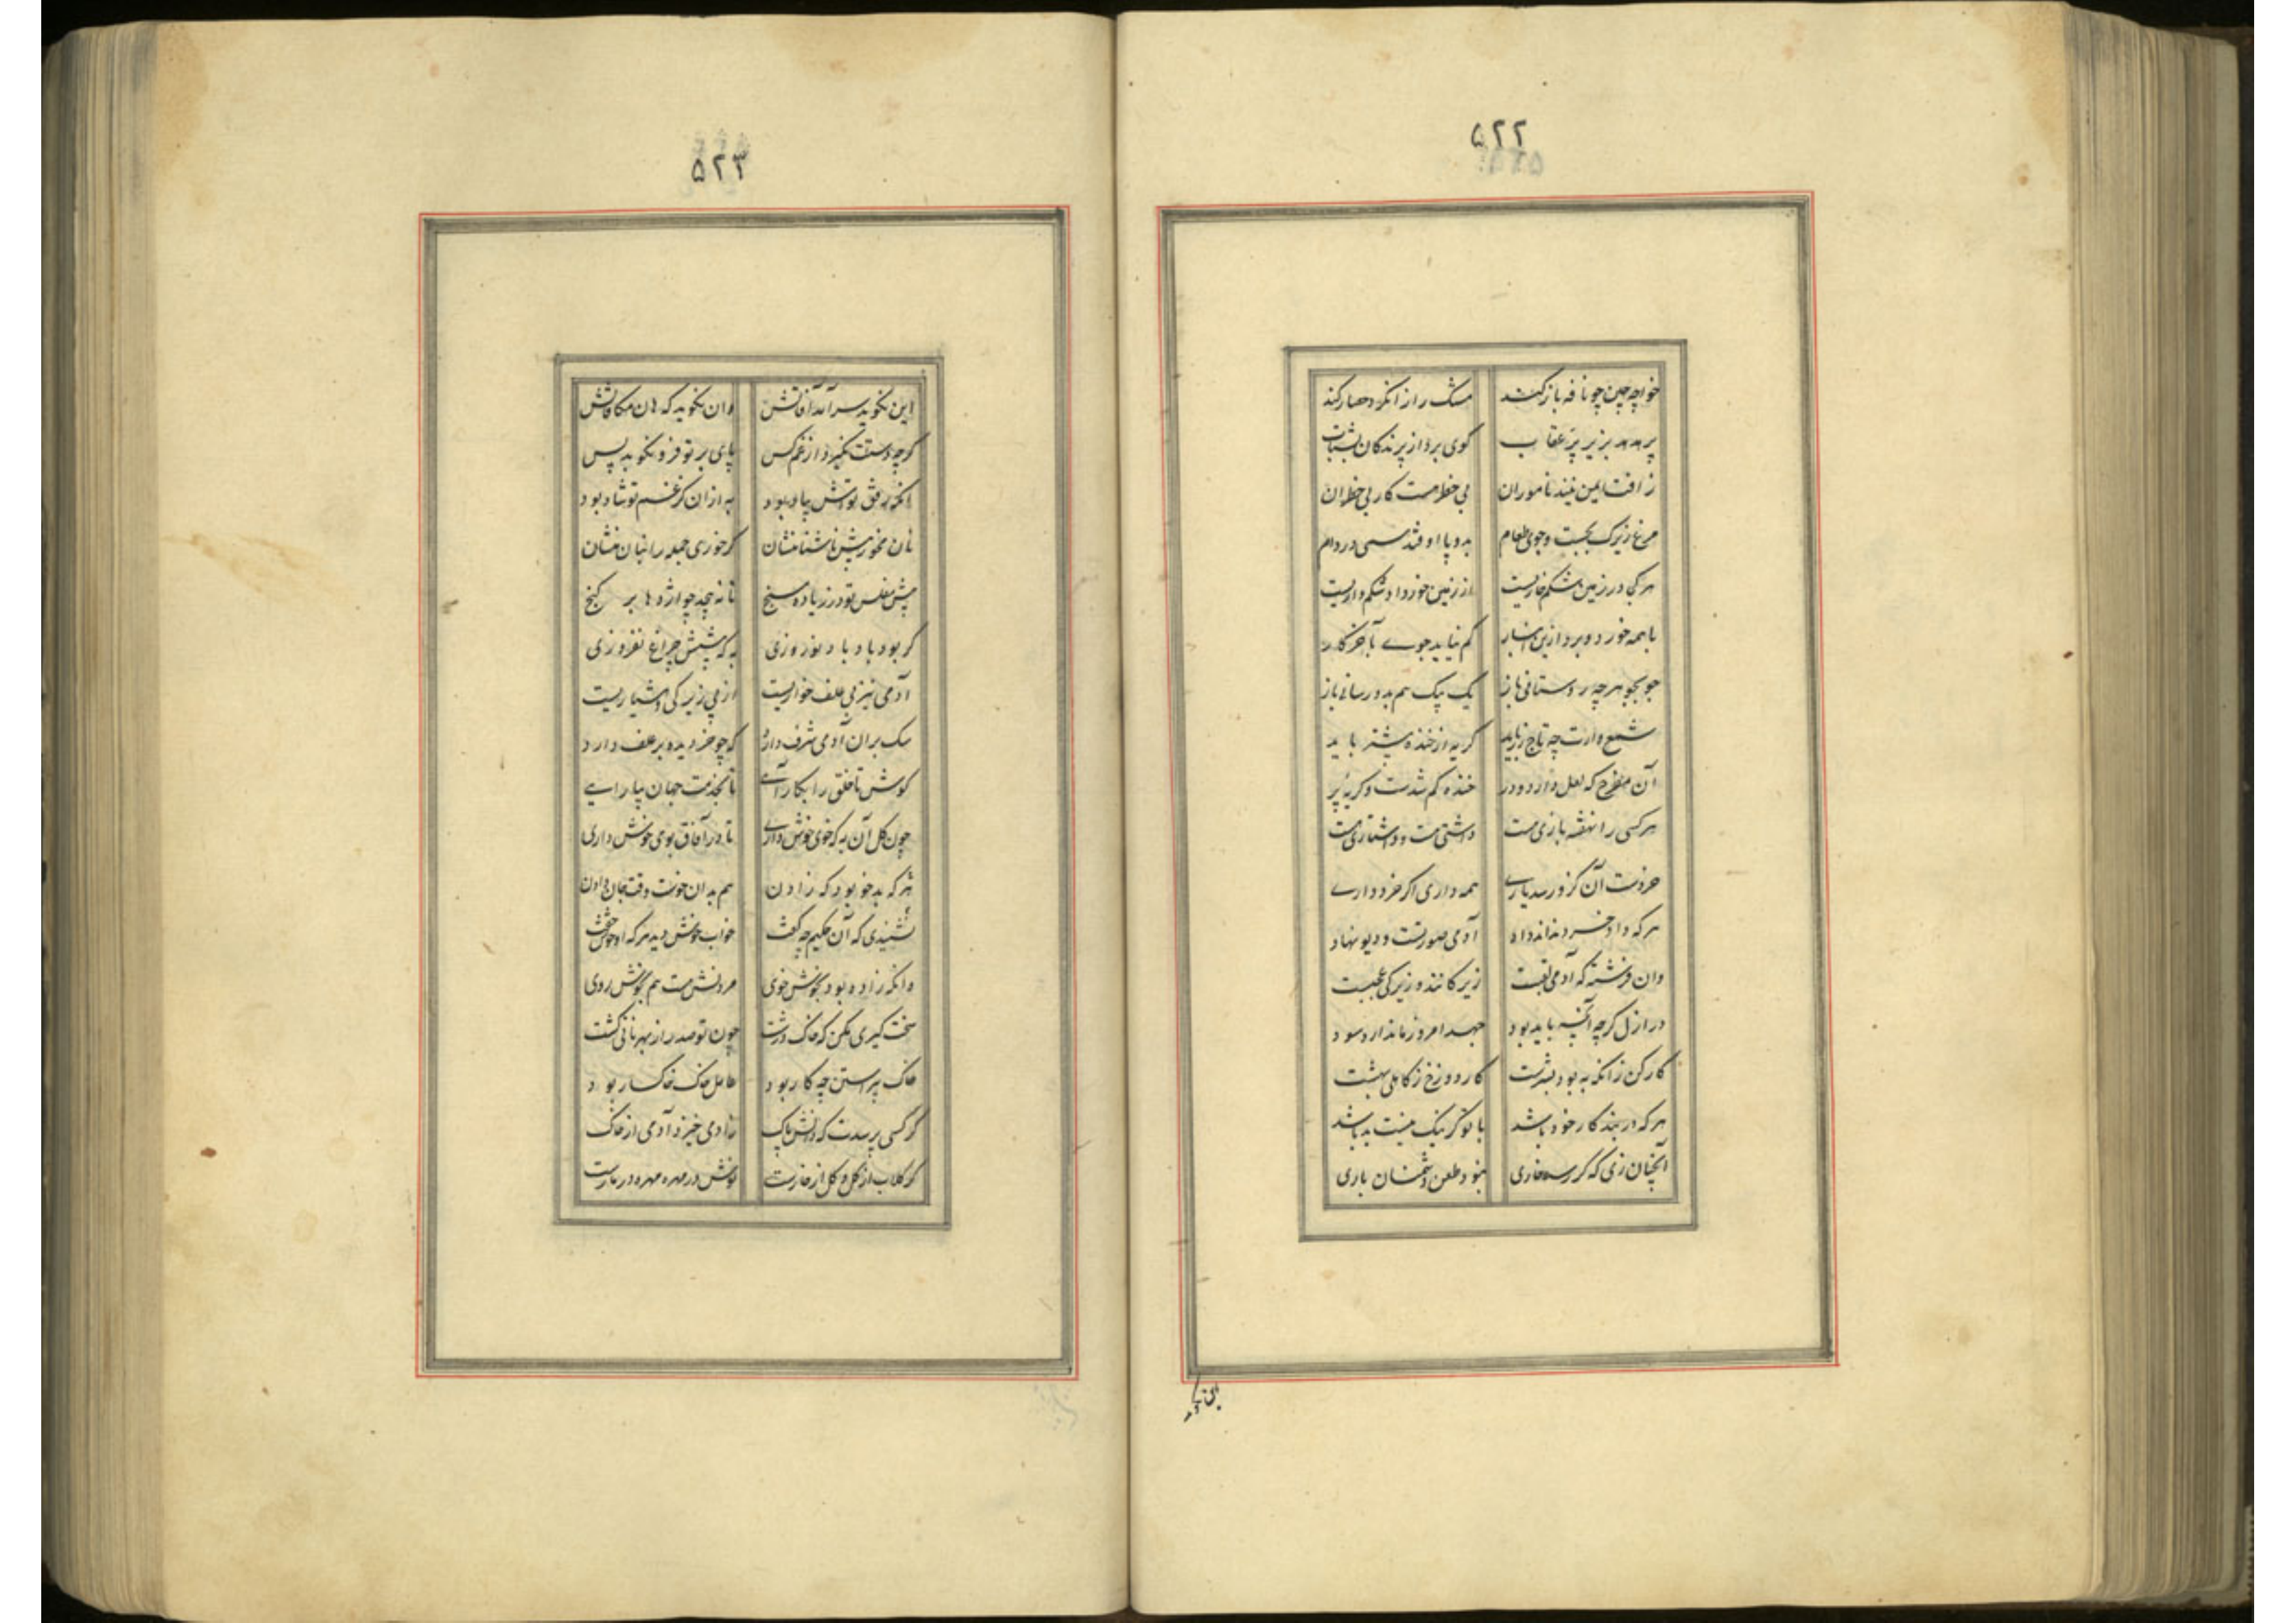 ۵۲۲
خواجه چین چو نافه باز کند مشک را ز انگزد حصار کند
پر هدهد بزیر پر عقاب گوی برد از پرندگان بشتاب
ز آفت ایمن نیند ناموران بی خطر هست کار بی خطران
مرغ زیرک بجست و جوی طعام بدو پا اوفتد همی در دام
هر کجا در زمین شکم خواریست از زمین خورد او شکم واریست
با همه خورد و برد ازین انبار کم نیاید جوی بآخر کار
جو بجو هرچه زو ستانی باز یک بیک هم بدو رسانی باز
شمع وارت چه تاج زر باید گریه از خنده بیشتر باید
آن مفرح که لعل دارد و در خنده کم شدست و گریه پر
هر کسی را نهفته یازی هست دوستی هست و دوستاری هست
خردست آن کزو رسد یاری همه داری اگر خرد داری
هر که داد خرد نداند داد آدمی صورتست و دیو نهاد
وان فرشته که آدمی لقبست زیرکانند و زیرکی عجبست
در ازل گرچه آنچه باید بود جهد امروز ما ندارد سود
کار کن زانکه به بود بسرشت کار دوزخ ز کاهلی بهشت
هر که در بند کار خود باشد با تو گر نیک نیست بد باشد
آنچنان زی که گر رسد خاری نبود طعن دشمنان باری
این نگوید
۵۲۳
این نگوید سرآمد آفاتش وان نگوید که هان مکافاتش
گرچه دستت نگیرد از غم کس پای بر تو فرو نکوبد پس
آنکه رفق تواش بیاد بود به از آن کز غم تو شاد بود
نان مخور پیش ناشتا منشان گر خوری جمله را بنان منشان
پیش مفلس تو زر زیاده مسنج تا نه پیچد چو اژدها بر گنج
گر بود باد باد نوروزی به که پیشش چراغ نفروزی
آدمی نیز پی علف خواریست از پی زیرکی و هشیاریست
سگ بر آن آدمی شرف دارد که چو خر دیده بر علف دارد
کوش تا خلق را بکار آئی تا بخدمت جهان بیارایی
چون گل آن به که خوی خوش داری تا در آفاق بوی خوش داری
هر که بدخو بود گه زادن هم بدان خوست وقت جان دادن
نشنیدی که آن حکیم چه گفت خواب خوش دید هر که او خوش خفت
وانکه زاده بود بخوش خوی مردنش هست هم بخوش روی
سخت گیری مکن که خاک درشت چون تو صد را ز بهر نانی کشت
خاک پیراستن چه کار بود حامل خاک خاکسار بود
گر کسی پرسدت که دانش پاک زادمی خیزد آدمی از خاک
گو گلاب از گل و گل از خارست نوش در مهره مهره در مارست